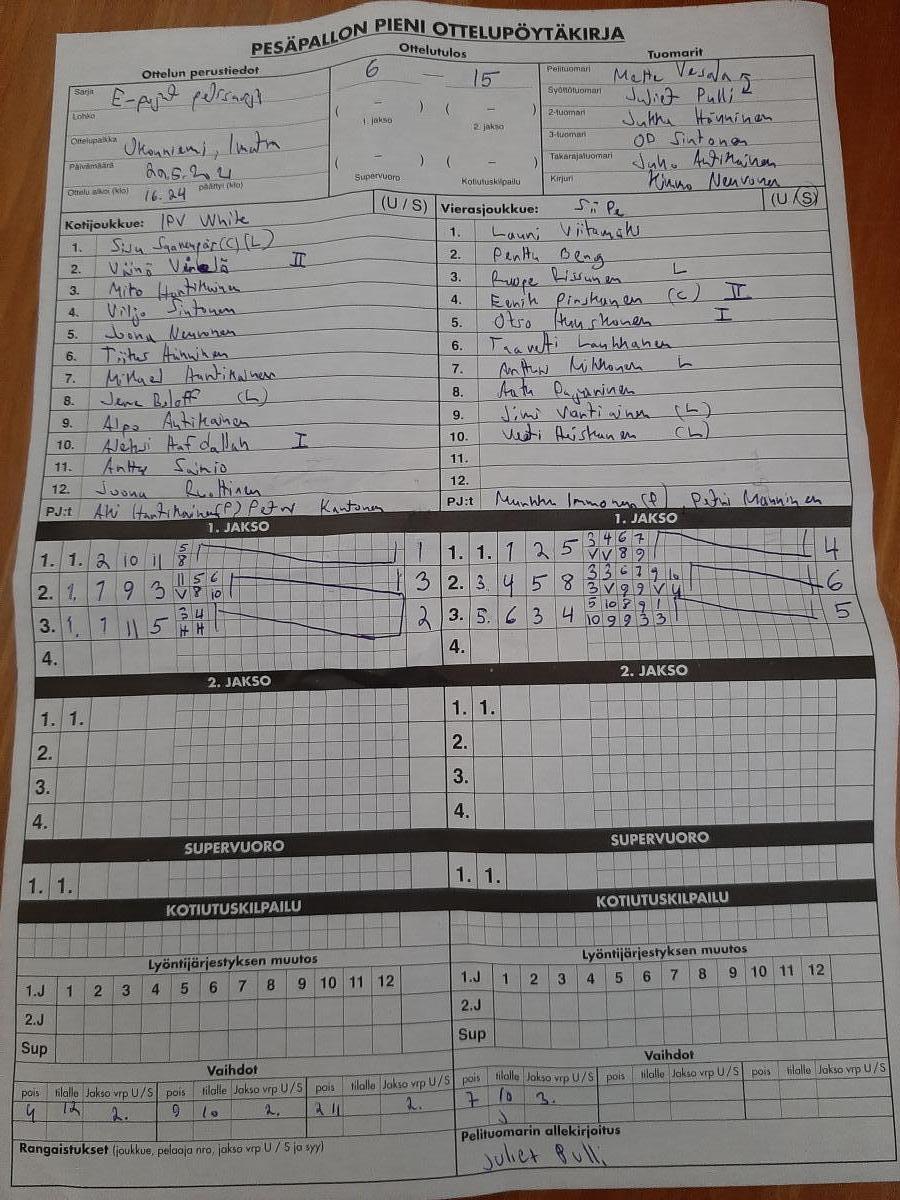 PESÄPALLON PIENI OTTELUPÖYTÄKIRJA
Ottelun perustiedot
Ottelutulos
Tuomarit
Sarja E-pojat
Lohko
Ottelupaikka Ukonniemi, Imatra
Päivämäärä
Ottelu alkoi (klo) 16.24 päättyi (klo)
6 — 15
( – ) ( – )
1. jakso 2. jakso
( – ) ( – )
Supervuoro Kotiutuskilpailu
Pelituomari Matte Vesala
Syöttötuomari Juliet Pulli
2-tuomari Jukka Hänninen
3-tuomari OP Sintonen
Takarajatuomari Juho Antikainen
Kirjuri Nevvonen
Kotijoukkue: IPV White (U / S)
1. (C) (L)
2. Väinö II
3. Hantikainen
4. Viljo Sintonen
5. Joona Neuvonen
6. Tiitus Hänninen
7. Mikael Hantikainen
8. (L)
9. Alpo Antikainen
10. I
11. Sainio
12. Joona
PJ:t Hantikainen (P) Petri Kantonen
Vierasjoukkue: SiiPe (U / S)
1. Lauri Viitamäki
2. Penttu Beng
3. Roope Rissanen L
4. Eenik (C) II
5. Otso Huuskonen I
6. Taaveti Laukkanen
7. Anttu Mikkonen L
8. Aatu
9. Jimi Vantiainen (L)
10. Veeti Heiskanen (L)
11.
12.
PJ:t Immonen (P) Petri Manninen
1. JAKSO
1. 1. 2 10 11 5 1
8
2. 1. 7 9 3 11 5 6 3
V 8 10
3. 1. 7 11 5 3 4 2
H H
4.
1. JAKSO
1. 1. 1 2 5 3 4 6 7 4
V V 8 9
2. 3. 4 5 8 3 3 6 7 9 10 6
3 V 9 9 V 4
3. 5. 6 3 4 5 10 8 9 1 5
10 9 9 3 3
4.
2. JAKSO
1. 1.
2.
3.
4.
2. JAKSO
1. 1.
2.
3.
4.
SUPERVUORO
1. 1.
SUPERVUORO
1. 1.
KOTIUTUSKILPAILU
KOTIUTUSKILPAILU
Lyöntijärjestyksen muutos
1.J 1 2 3 4 5 6 7 8 9 10 11 12
2.J
Sup
Lyöntijärjestyksen muutos
1.J 1 2 3 4 5 6 7 8 9 10 11 12
2.J
Sup
Vaihdot
pois tilalle Jakso vrp U / S pois tilalle Jakso vrp U / S pois tilalle Jakso vrp U / S
4 12 2. 9 10 2. 2 11 2.
Vaihdot
pois tilalle Jakso vrp U / S pois tilalle Jakso vrp U / S pois tilalle Jakso vrp U / S
7 10 3.
Rangaistukset (joukkue, pelaaja nro, jakso vrp U / S ja syy)
Pelituomarin allekirjoitus
Juliet Pulli